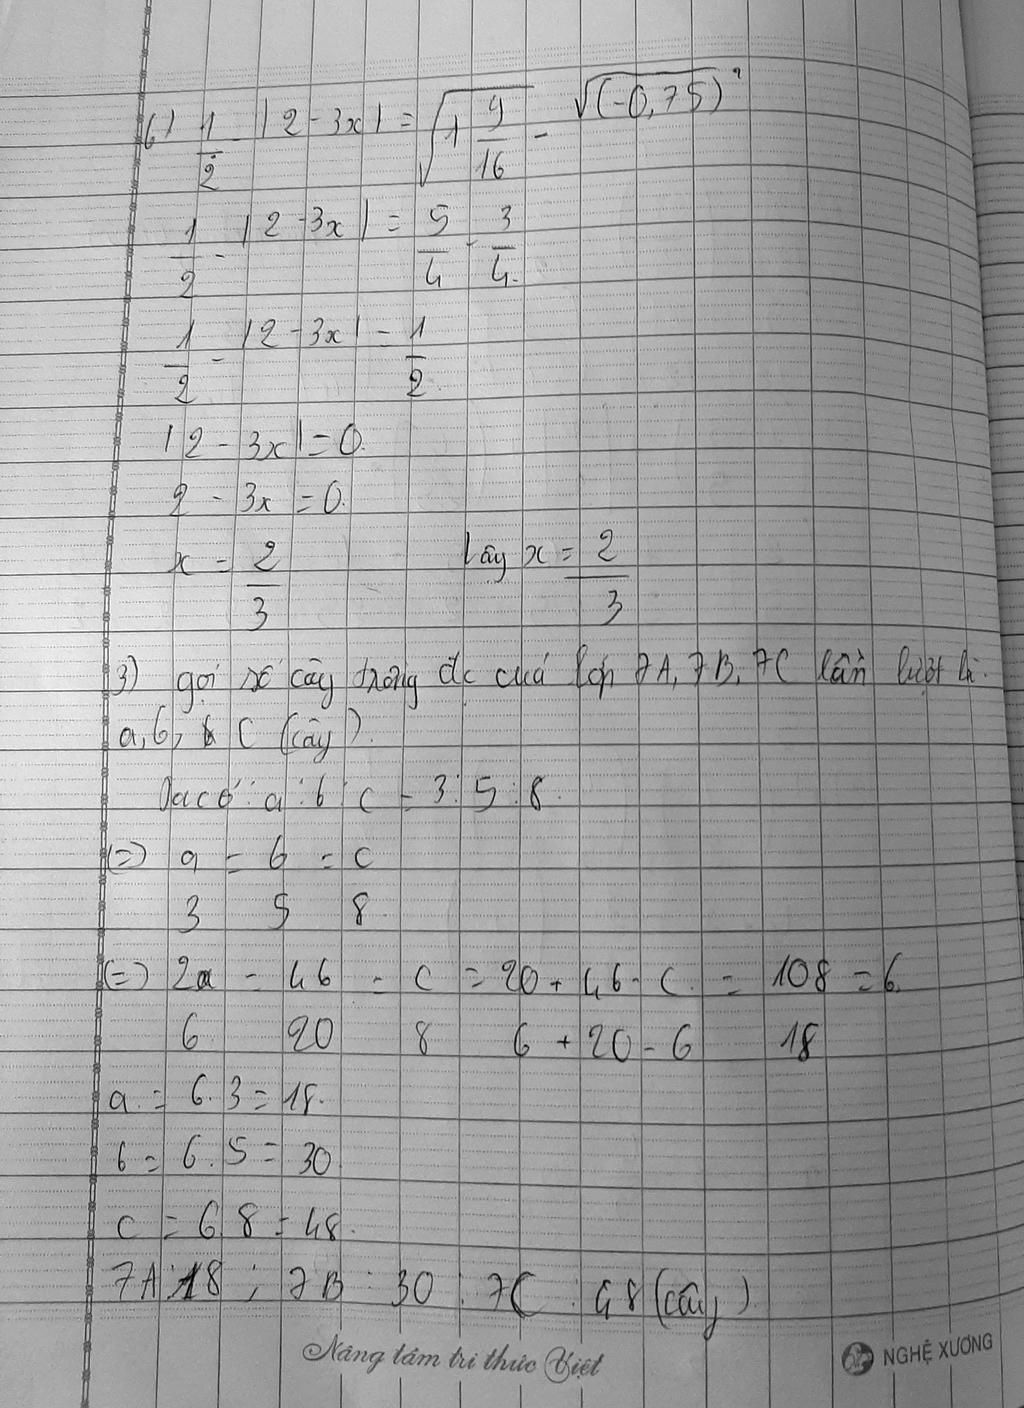 b) 1/2 - |2 - 3x| = √(1 9/16) - √((-0,75)²)
1/2 - |2 - 3x| = 5/4 - 3/4.
1/2 - |2 - 3x| = 1/2
|2 - 3x| = 0.
2 - 3x = 0.
x = 2/3 Vây x = 2/3
3) gọi số cây trồng đc của lớp 7A, 7B, 7C lần lượt là.
a, b, c (cây).
Ta có: a : b : c = 3 : 5 : 8.
(=) a/3 = b/5 = c/8
(=) 2a/6 = 4b/20 = c/8 = 20 + 4b - c/6 + 20 - 6 = 108/18 = 6.
a = 6.3 = 18.
b = 6.5 = 30
c = 6 8 = 48.
7A: 18 ; 7B : 30 ; 7C : 48 (cây)
Nâng tầm tri thức Việt NGHỆ XƯƠNG